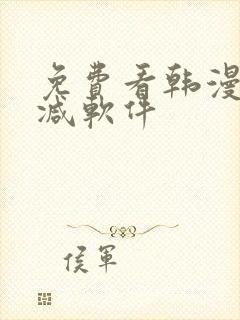 免費看韩漫
减軟件
侯軍